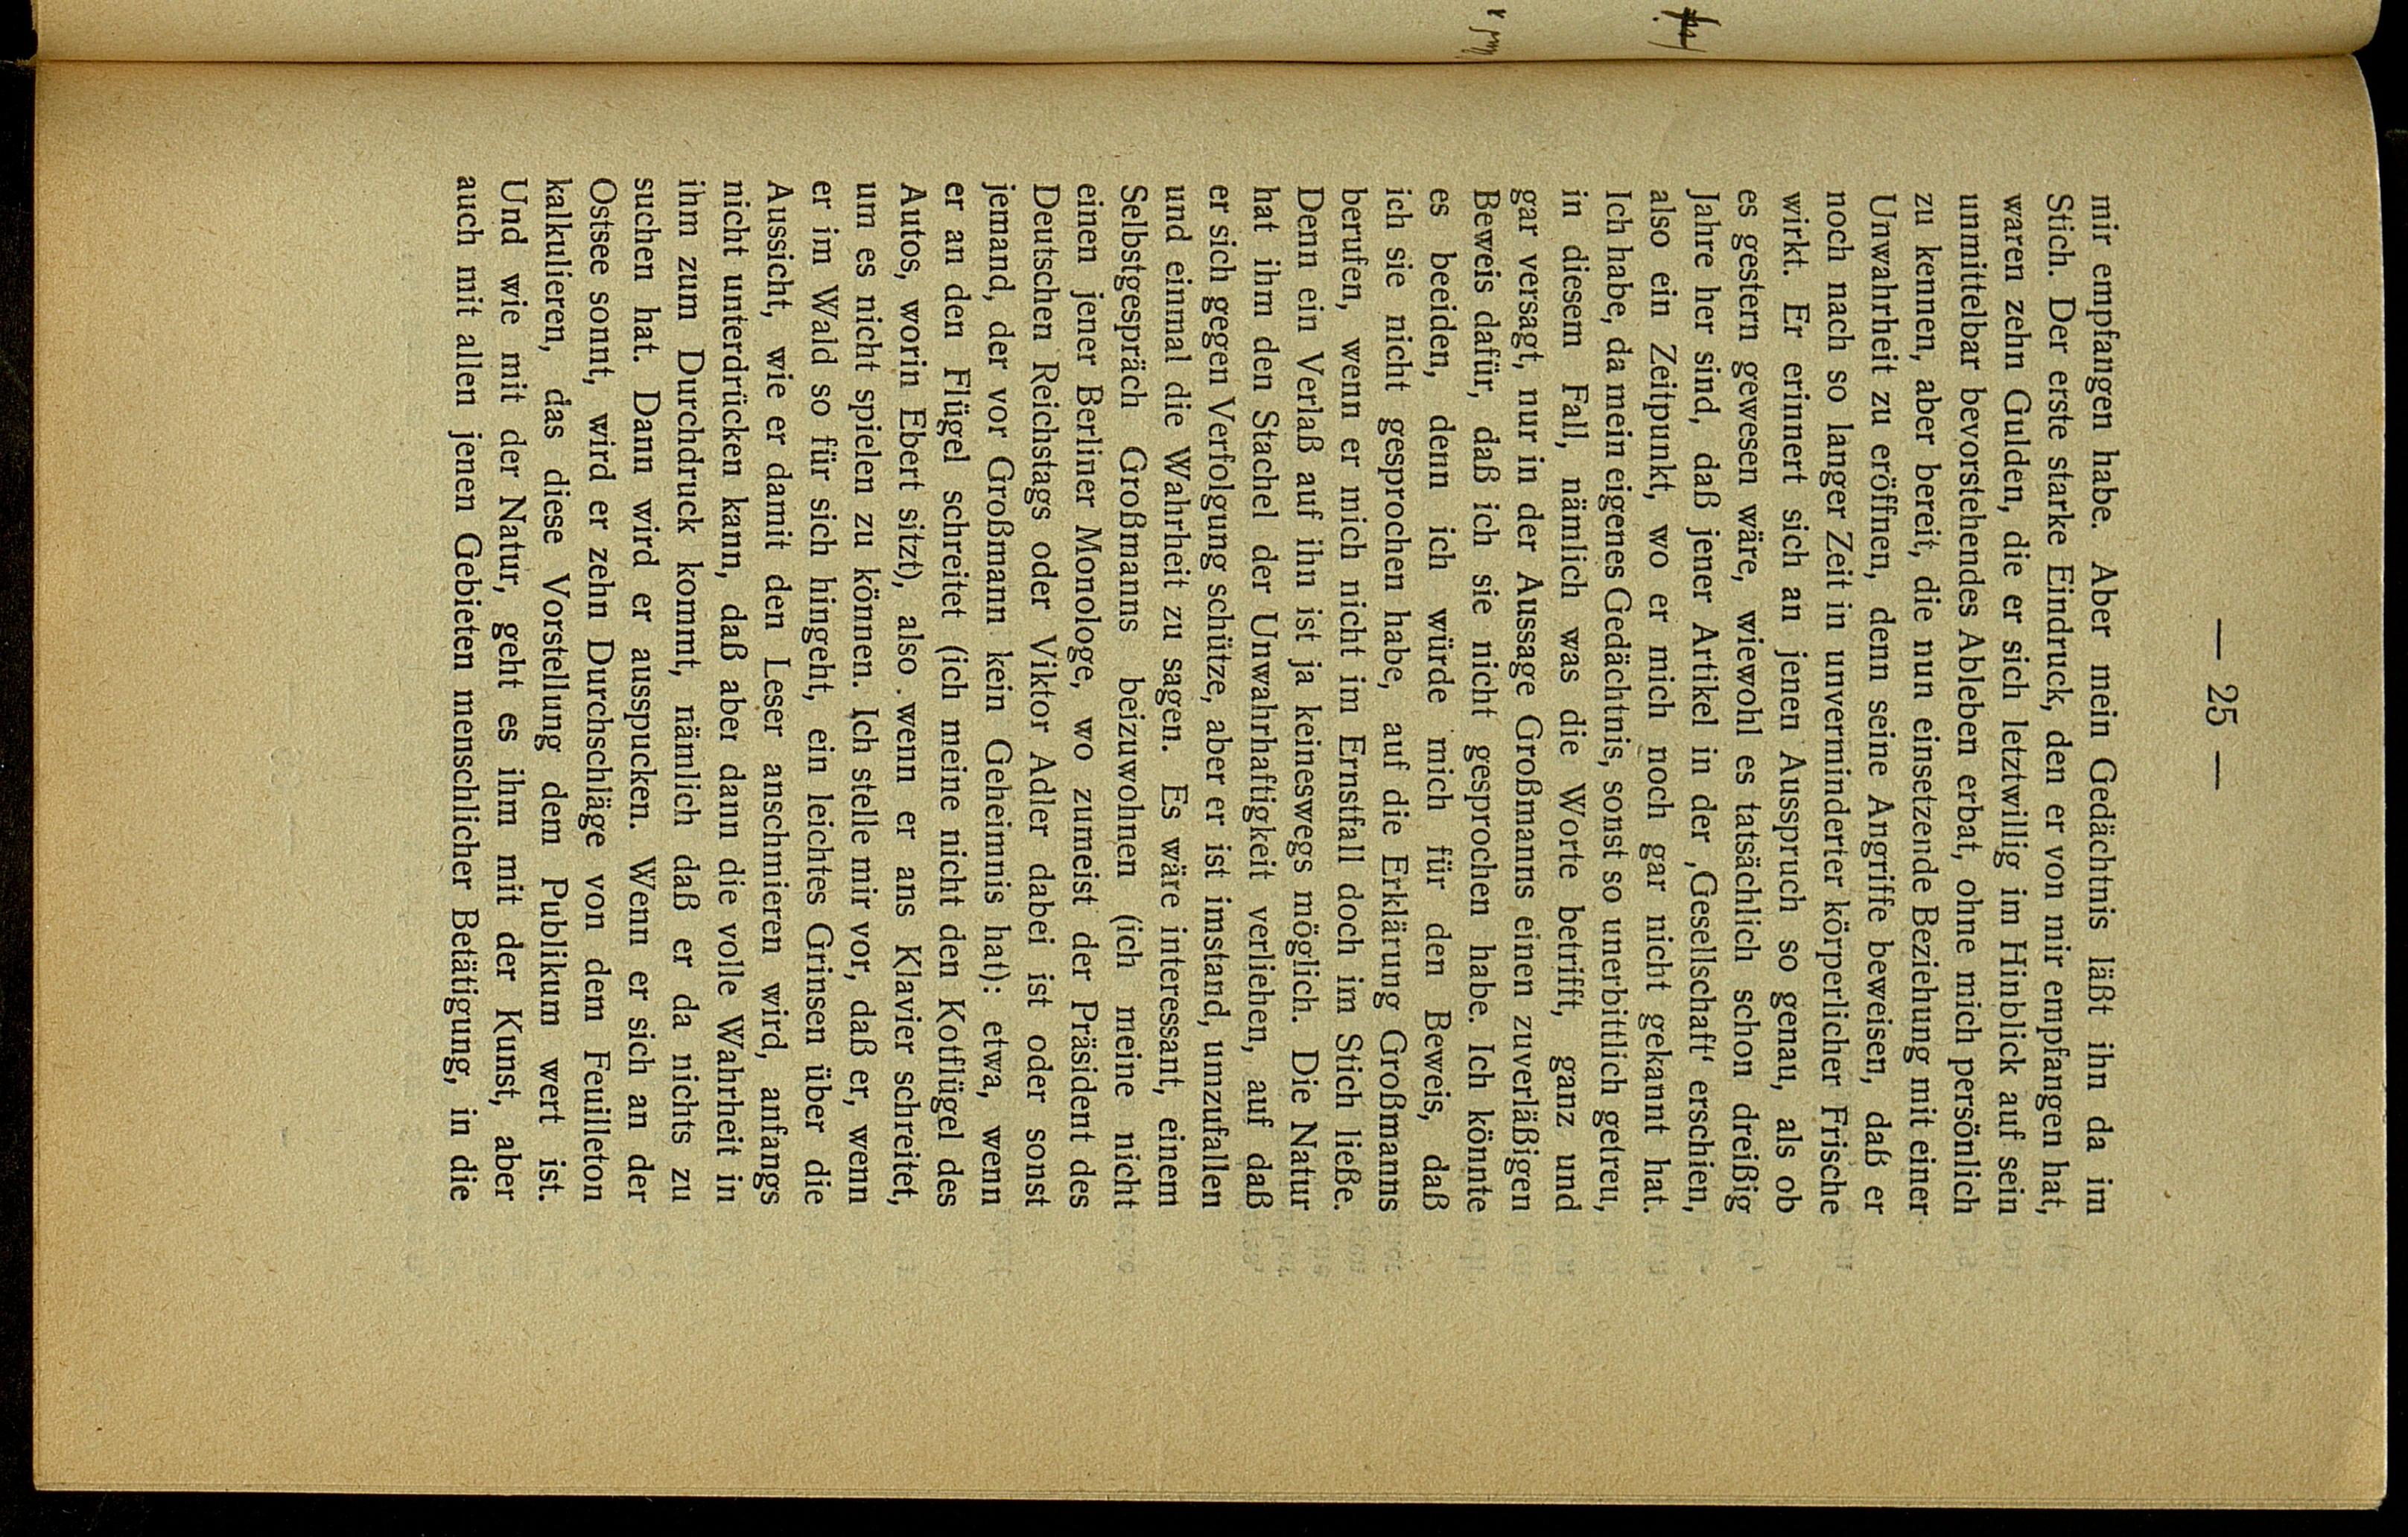 — 25 —
mir empfangen habe. Aber mein Gedächtnis läßt ihn da im
Stich. Der erste starke Eindruck, den er von mir empfangen hat,
waren zehn Gulden, die er sich letztwillig im Hinblick auf sein
unmittelbar bevorstehendes Ableben erbat, ohne mich persönlich
zu kennen, aber bereit, die nun einsetzende Beziehung mit einer
Unwahrheit zu eröffnen, denn seine Angriffe beweisen, daß er
noch nach so langer Zeit in unverminderter körperlicher Frische
wirkt. Er erinnert sich an jenen Ausspruch so genau, als ob
es gestern gewesen wäre, wiewohl es tatsächlich schon dreißig
Jahre her sind, daß jener Artikel in der ‚Gesellschaft' erschien,
also ein Zeitpunkt, wo er mich noch gar nicht gekannt hat.
Ich habe, da mein eigenes Gedächtnis, sonst so unerbittlich getreu,
in diesem Fall, nämlich was die Worte betrifft, ganz und
gar versagt, nur in der Aussage Großmanns einen zuverläßigen
Beweis dafür, daß ich sie nicht gesprochen habe. Ich könnte
es beeiden, denn ich würde mich für den Beweis, daß
ich sie nicht gesprochen habe, auf die Erklärung Großmanns
berufen, wenn er mich nicht im Ernstfall doch im Stich ließe.
Denn ein Verlaß auf ihn ist ja keineswegs möglich. Die Natur
hat ihm den Stachel der Unwahrhaftigkeit verliehen, auf daß
er sich gegen Verfolgung schütze, aber er ist imstand, umzufallen
und einmal die Wahrheit zu sagen. Es wäre interessant, einem
Selbstgespräch Großmanns beizuwohnen (ich meine nicht
einen jener Berliner Monologe, wo zumeist der Präsident des
Deutschen Reichstags oder Viktor Adler dabei ist oder sonst
jemand, der vor Großmann kein Geheimnis hat): etwa, wenn
er an den Flügel schreitet (ich meine nicht den Kotflügel des
Autos, worin Ebert sitzt), also wenn er ans Klavier schreitet,
um es nicht spielen zu können. Ich stelle mir vor, daß er, wenn
er im Wald so für sich hingeht, ein leichtes Grinsen über die
Aussicht, wie er damit den Leser anschmieren wird, anfangs
nicht unterdrücken kann, daß aber dann die volle Wahrheit in
ihm zum Durchdruck kommt, nämlich daß er da nichts zu
suchen hat. Dann wird er ausspucken. Wenn er sich an der
Ostsee sonnt, wird er zehn Durchschläge von dem Feuilleton
kalkulieren, das diese Vorstellung dem Publikum wert ist.
Und wie mit der Natur, geht es ihm mit der Kunst, aber
auch mit allen jenen Gebieten menschlicher Betätigung, in die